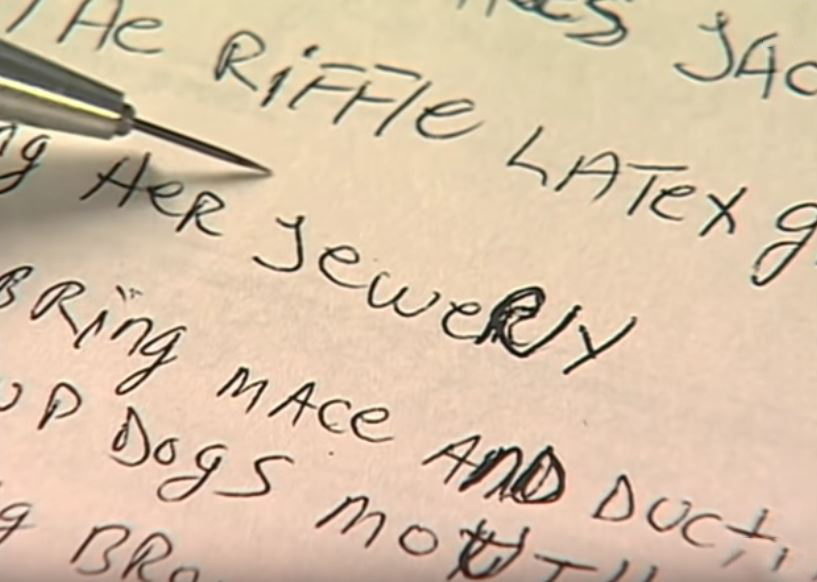 JAC
THE RiFFle LATex g
HeR JeweRly
BRing MAce AND DUCT
UP DogS MOUTH